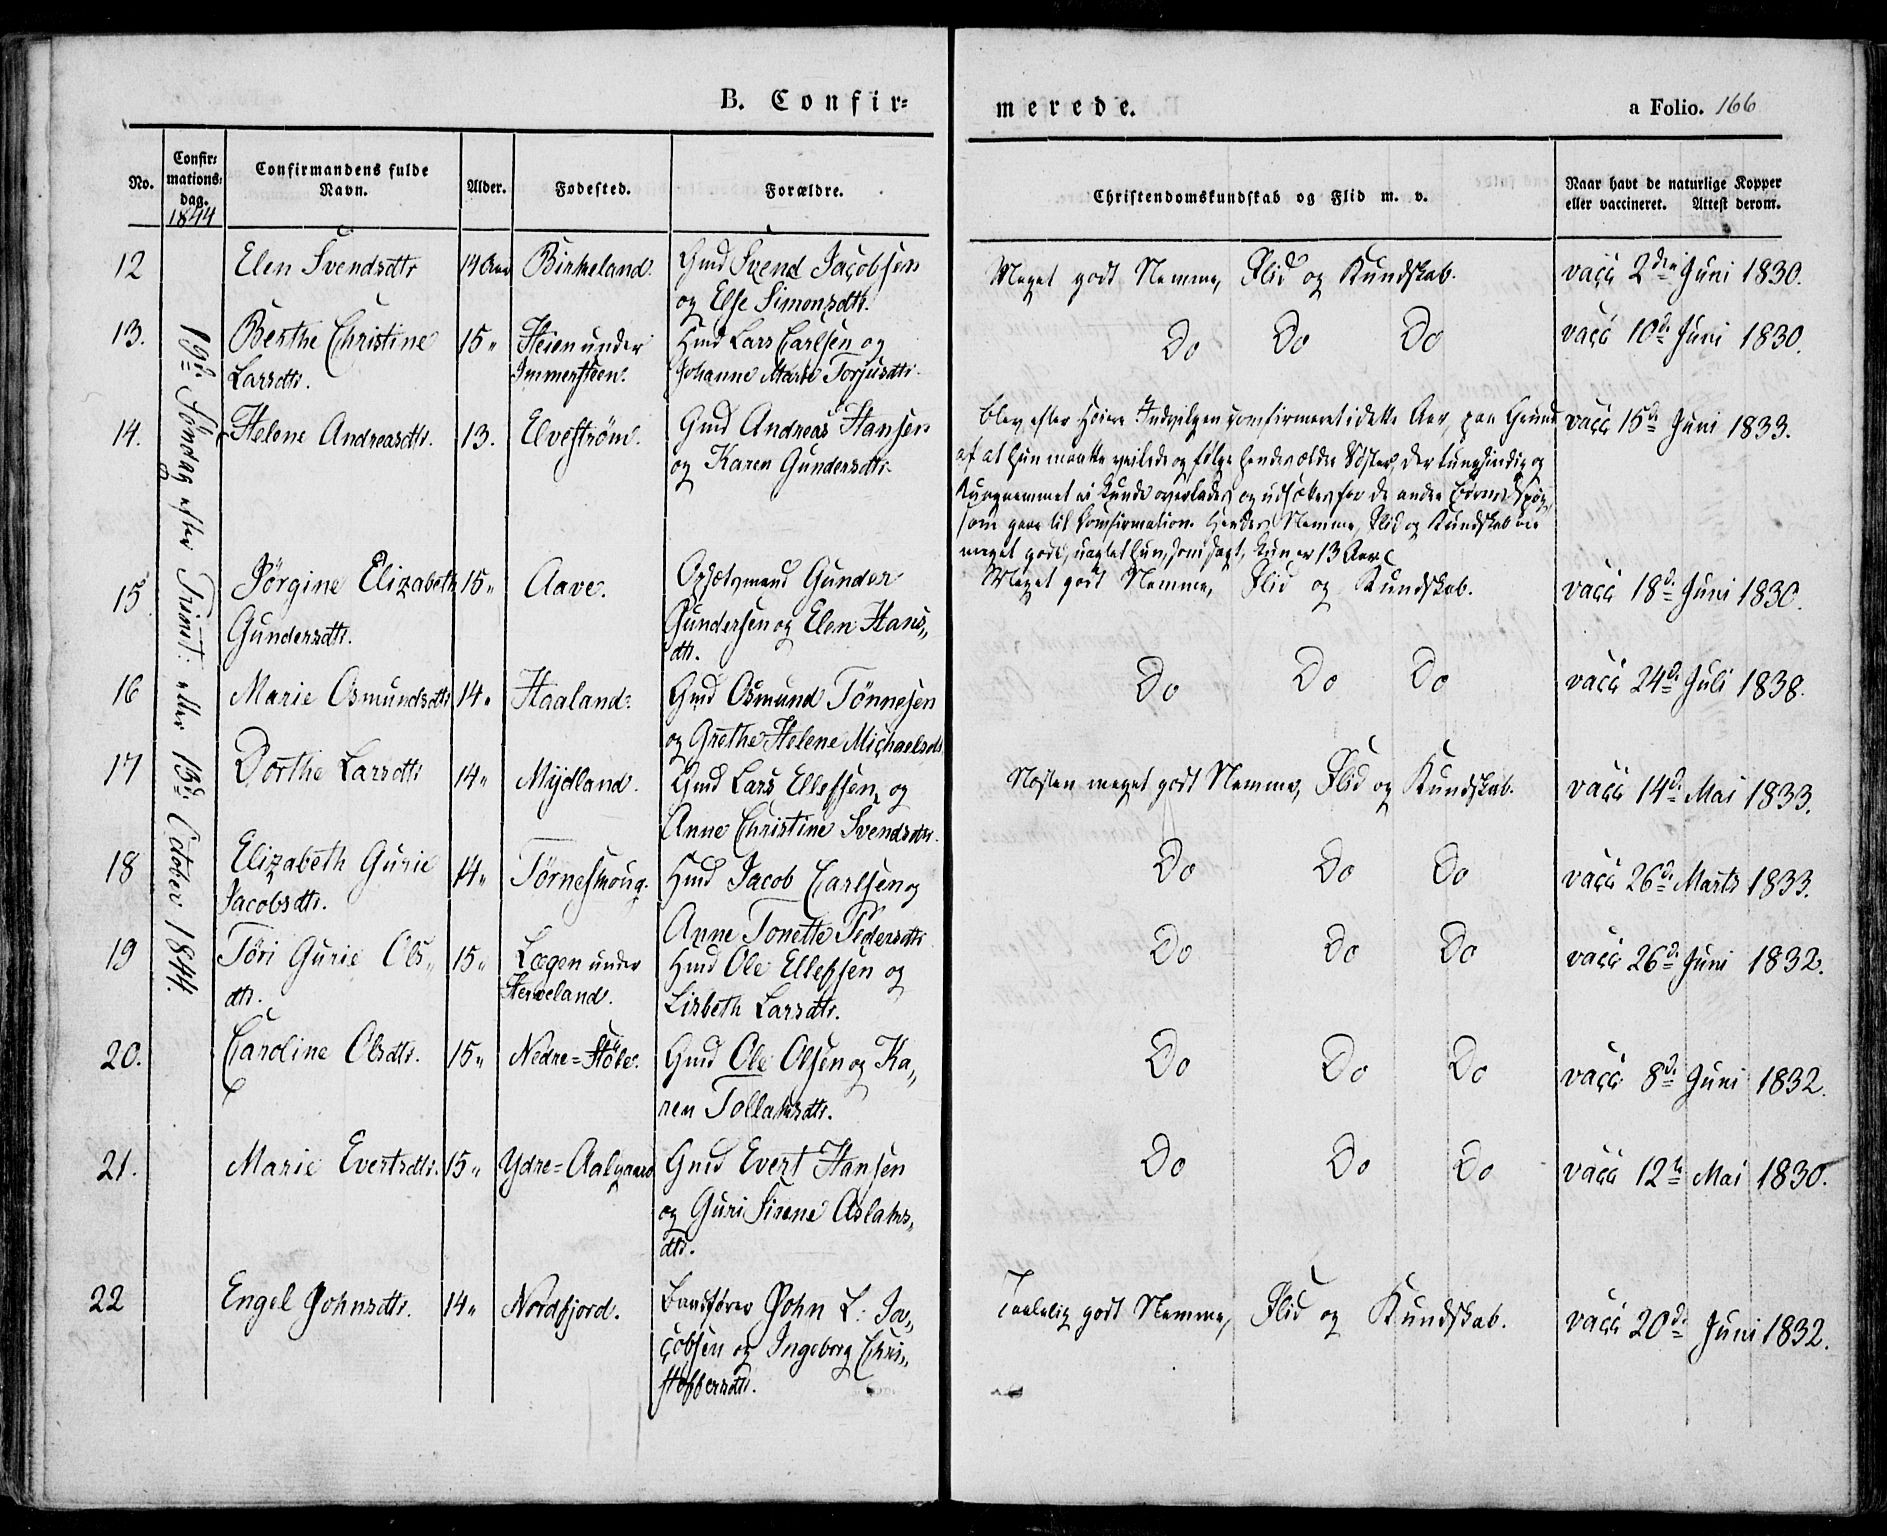 B. Confir=
merede.
a Folio. 166
No.
Confir=
mations=
dag.
1844
Confirmandens fulde
Navn.
Alder.
Fodested.
Forældre.
Christendomskundskab og Flid m. v.
Naar havt de naturlige Kopper
eller vaccineret. Attest derom.
19de Söndag efter Trinit: eller 13de October 1844.
12 Elen Svendsdtr 14 Aar Birkeland. Gmd Svend Jacobsen
og Else Simonsdtr.
Meget godt Nemme, Flid og Kundskab. vacc 2den Juni 1830.
13. Berthe Christine 15 " Heien under Hmd Lars Carlsen og
Larsdtr. Immersteen. Johanne Marie Torjusdtr.
Do Do Do vacc 10de Juni 1830.
14. Helene Andreasdtr. 13. Elveström. Gmd Andreas Hansen
og Karen Gundersdtr.
blev efter Höiere confirmeret i dette Aar, paa Grund vacc 15de Juni 1833.
af at hun maatte veilede og fölge hendes ældre Söster, der tungsindig og
tungnemmet ei kunde overlades og udsættes for de andre Börns
som gaae til Confirmation. Hendes Nemme, Flid og Kundskab ere
meget gode, uagtet hun, som sagt, kun er 13 Aar.
15. Jörgine Elizabeth 15 " Aave. Opsætsmand Gunder
Gundersdtr. Gundersen og Elen Hans„
dtr.
Meget godt Nemme, Flid og Kundskab. vacc 18de Juni 1830.
16 Marie Osmundsdtr 14 " Haaland. Gmd Osmund Tönnesen
og Grethe Helene Michaelsdtr
Do Do Do vacc 24de Juli 1838.
17 Dorthe Larsdtr 14 " Mydland. Gmd Lars Ellefsen og
Anne Christine Svendsdtr.
Næsten meget godt Nemme, Flid og Kundskab. vacc 14de Mai 1833.
18 Elizabeth Gurie 14 " Törneskoug. Hmd Jacob Carlsen og
Jacobsdtr. Anne Tonette Pedersdtr
Do Do Do vacc 26de Marts 1833.
19 Töri Gurie Ols„ 15 " Lægen under Hmd Ole Ellefsen og
dtr. Herveland. Lisbeth Larsdtr.
Do Do Do vacc 26de Juni 1832.
20. Caroline Olsdtr. 15 " Nedre=Stöle. Gmd Ole Olsen og Ka„
ren Tollaksdtr.
Do Do Do vacc 8de Juni 1832.
21. Marie Evertsdtr. 15 " Ydre=Aalgaard Gmd Evert Hansen
og Guri Sirene Aslaks„
dtr.
Do Do Do vacc 12te Mai 1830.
22 Engel Johnsdtr. 14 " Nordfjord. John L. Ja„
cobsen og Ingeborg Chri„
stoffersdtr.
Taalelig godt Nemme, Flid og Kundskab. vacc 20de Juni 1832.